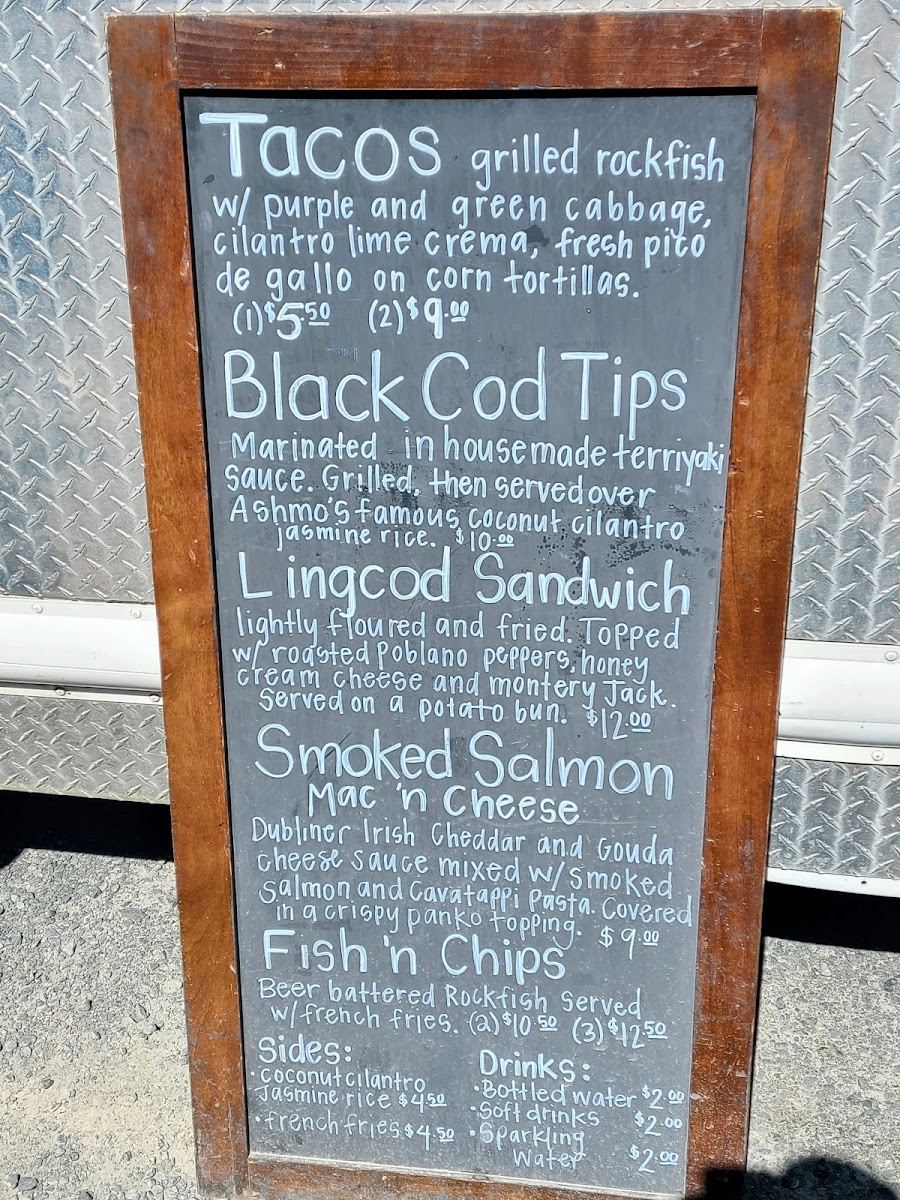 Tacos grilled rockfish
w/ purple and green cabbage,
cilantro lime crema, fresh pico
de gallo on corn tortillas.
(1) $5.50 (2) $9.00
Black Cod Tips
Marinated in housemade terriyaki
sauce. Grilled, then served over
Ashmo's famous coconut cilantro
jasmine rice. $10.00
Lingcod Sandwich
lightly floured and fried. Topped
w/ roasted poblano peppers, honey
cream cheese and montery Jack.
Served on a potato bun. $12.00
Smoked Salmon
Mac 'n Cheese
Dubliner Irish Cheddar and Gouda
cheese sauce mixed w/ smoked
Salmon and Cavatappi pasta. Covered
in a crispy panko topping. $9.00
Fish 'n Chips
Beer battered Rockfish served
w/ french fries. (2) $10.50 (3) $12.50
Sides:
• coconut cilantro
Jasmine rice $4.50
• french fries $4.50
Drinks:
• Bottled water $2.00
• Soft drinks $2.00
• Sparkling
Water $2.00